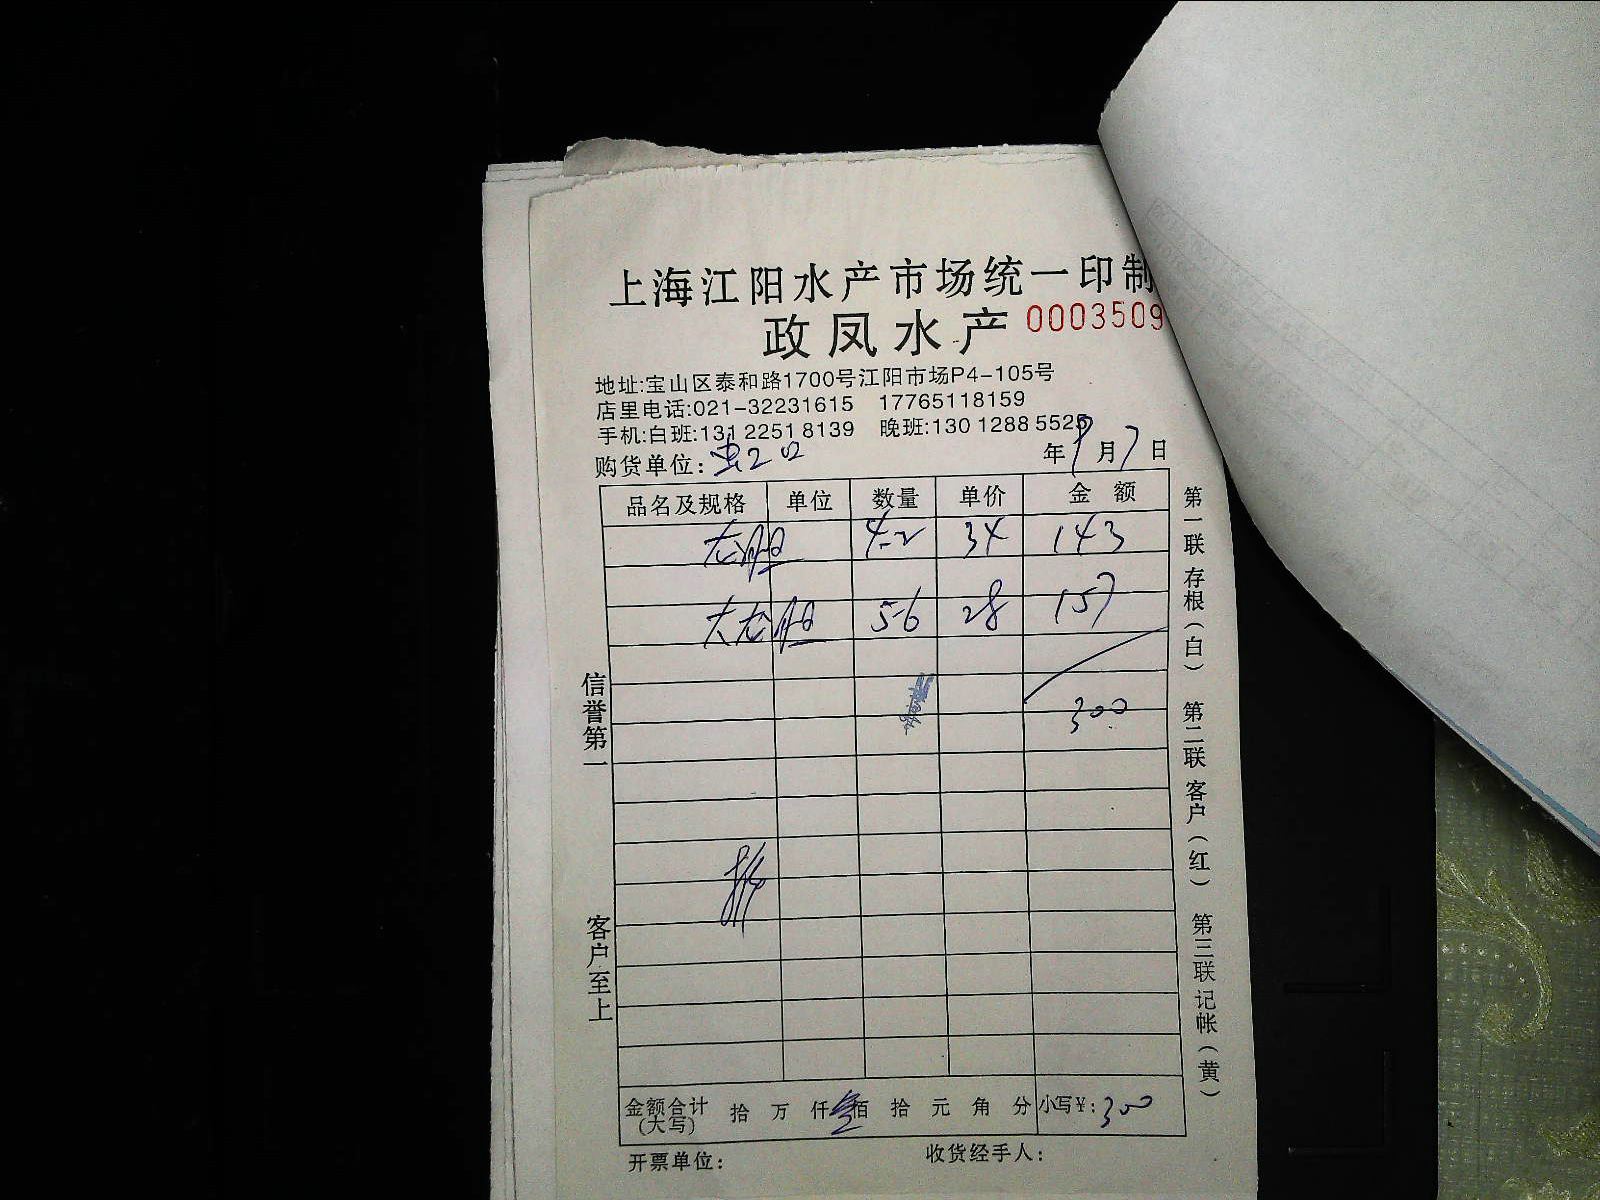 上海江阳水产市场统一印制
政凤水产 0003509
地址:宝山区泰和路1700号江阳市场P4-105号
店里电话:021-32231615 17765118159
手机:白班:131 2251 8139 晚班:130 1288 5525
购货单位:
年9月7日
品名及规格 单位 数量 单价 金额
4-2 34 143
5-6 28 157
300
金额合计(大写) 拾 万 仟 叁佰 拾 元 角 分 小写¥:300
开票单位: 收货经手人:
信誉第一
客户至上
第一联 存根(白) 第二联 客户(红) 第三联 记帐(黄)